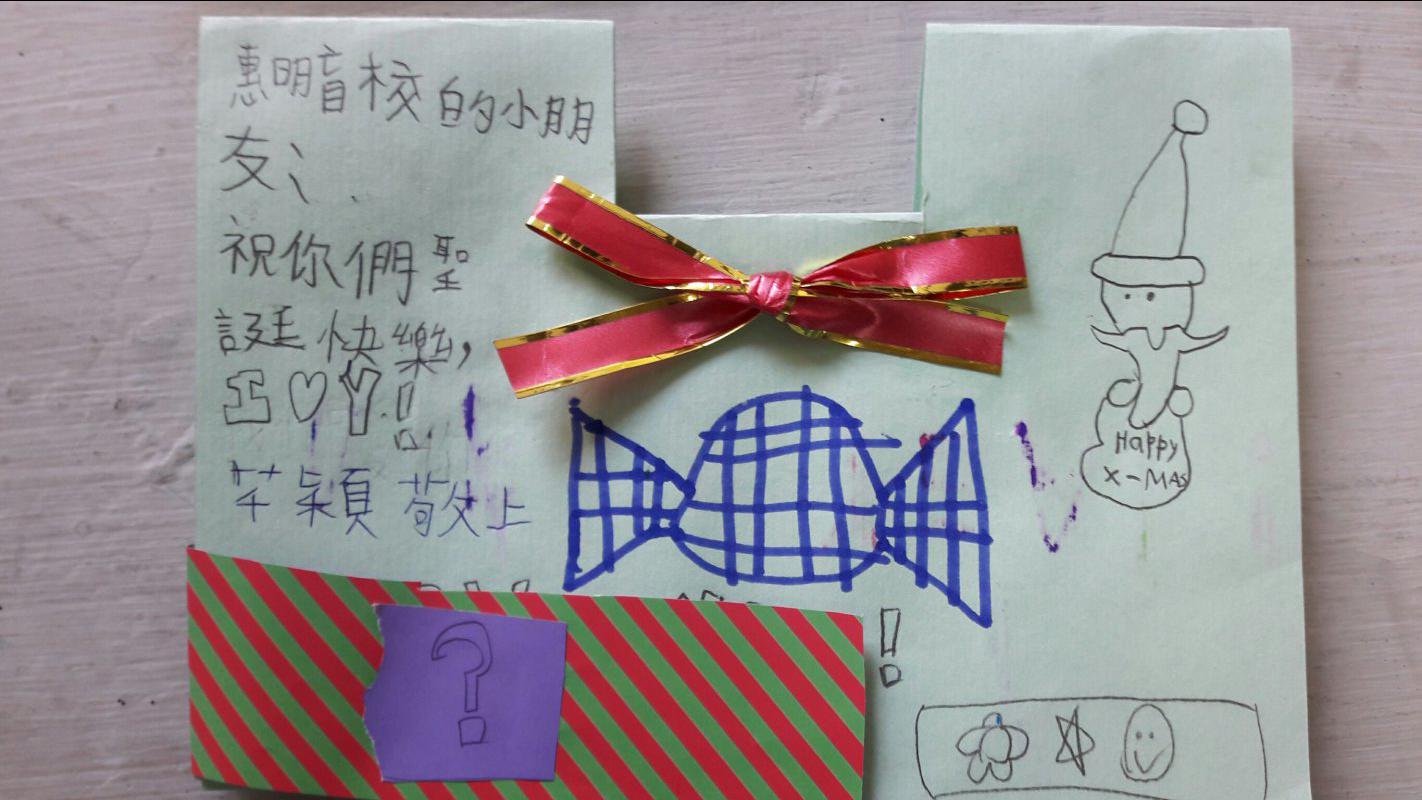 惠明盲校的小朋
友:
祝你們聖
誕快樂,
I♡Y!
芊穎敬上
Happy
X-MAS
?
!